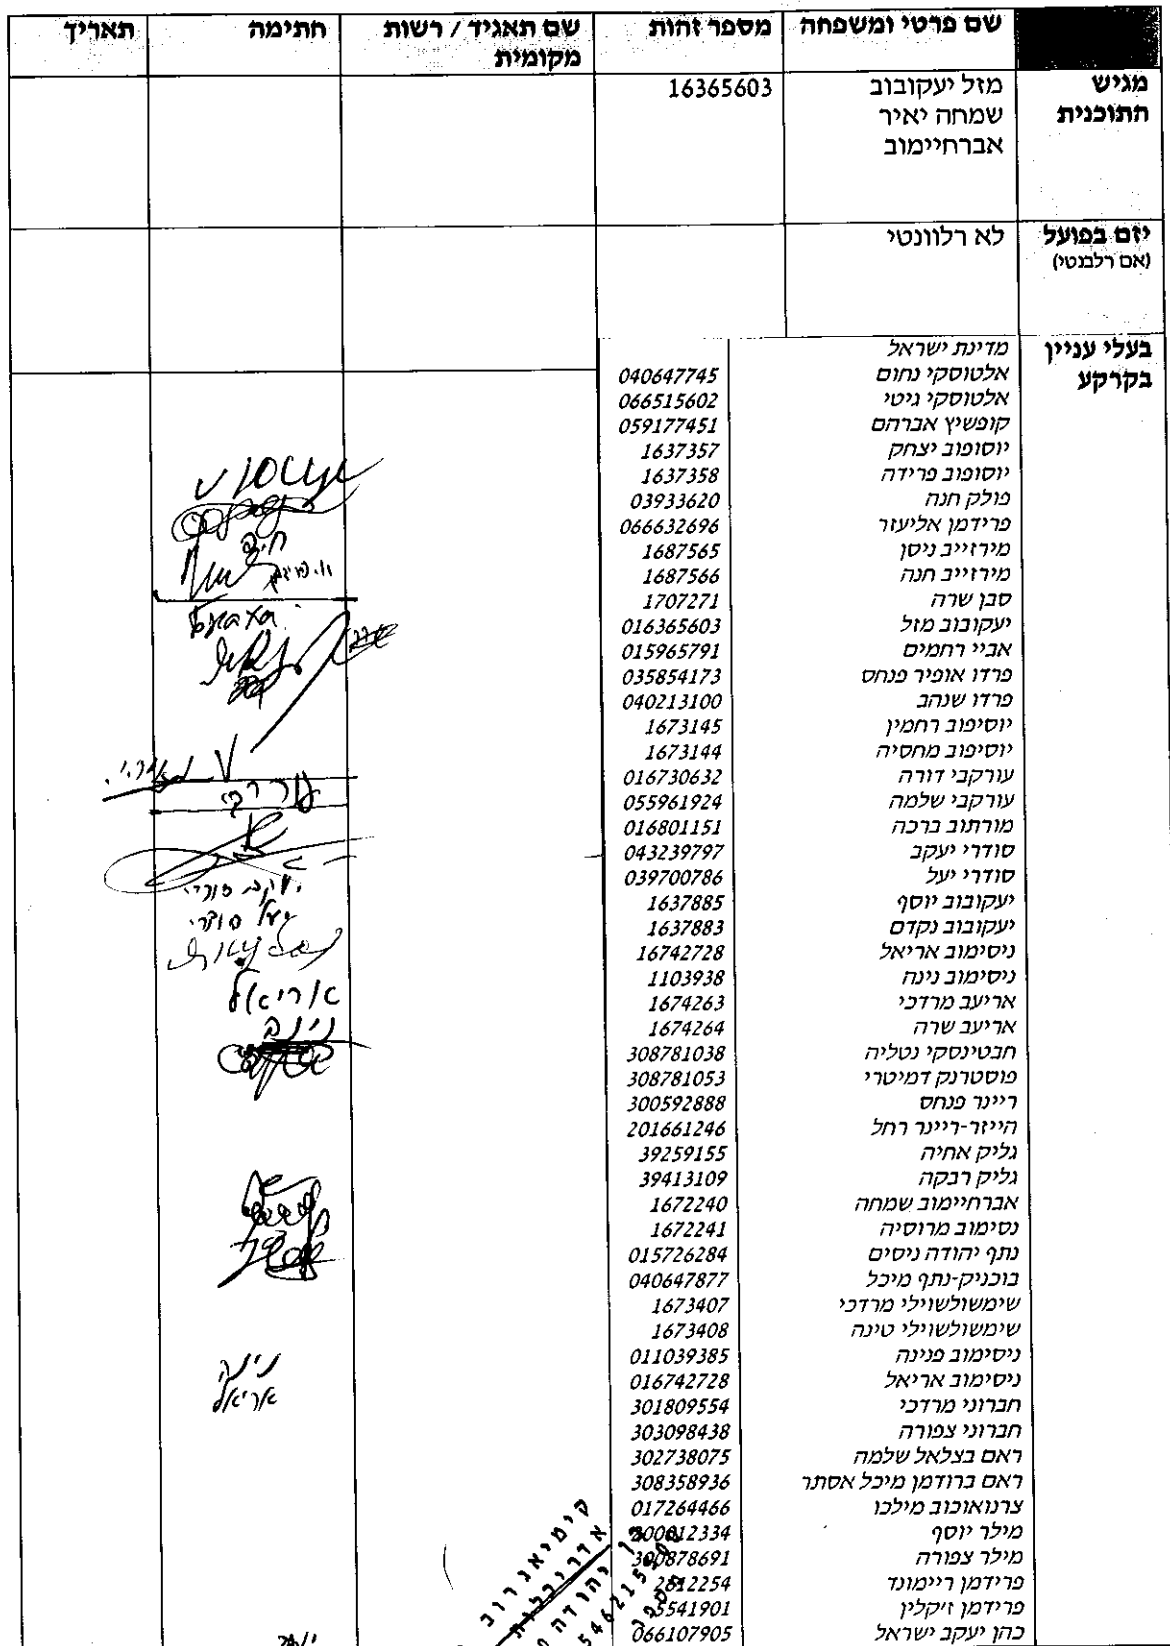 שם פרטי ומשפחה מספר זהות שם תאגיד / רשות מקומית חתימה תאריך
מגיש התוכנית מזל יעקובוב 16365603
שמחה יאיר
אברחיימוב
יזם בפועל לא רלוונטי
(אם רלבנטי)
בעלי עניין בקרקע
מדינת ישראל
אלטוסקי נחום 040647745
אלטוסקי גיטי 066515602
קופשיץ אברהם 059177451
יוסופוב יצחק 1637357
יוסופוב פרידה 1637358
פולק חנה 03933620
פרידמן אליעזר 066632696
מירזייב ניסן 1687565
מירזייב חנה 1687566
סבן שרה 1707271
יעקובוב מזל 016365603
אביי רחמים 015965791
פרדו אופיר פנחס 035854173
פרדו שנהב 040213100
יוסיפוב רחמין 1673145
יוסיפוב מחסיה 1673144
עורקבי דורה 016730632
עורקבי שלמה 055961924
מורתוב ברכה 016801151
סודרי יעקב 043239797
סודרי יעל 039700786
יעקובוב יוסף 1637885
יעקובוב נקדם 1637883
ניסימוב אריאל 16742728
ניסימוב נינה 1103938
אריעב מרדכי 1674263
אריעב שרה 1674264
חבטינסקי נטליה 308781038
פוסטרנק דמיטרי 308781053
ריינר פנחס 300592888
הייזר-ריינר רחל 201661246
גליק אחיה 39259155
גליק רבקה 39413109
אברחיימוב שמחה 1672240
נסימוב מרוסיה 1672241
נתף יהודה ניסים 015726284
בוכניק-נתף מיכל 040647877
שימשולשוילי מרדכי 1673407
שימשולשוילי טינה 1673408
ניסימוב פנינה 011039385
ניסימוב אריאל 016742728
חברוני מרדכי 301809554
חברוני צפורה 303098438
ראם בצלאל שלמה 302738075
ראם ברודמן מיכל אסתר 308358936
צרנואוכוב מילכו 017264466
מילר יוסף
מילר צפורה 300878691
פרידמן ריימונד
פרידמן ז'קלין
כהן יעקב ישראל 066107905
יעקב סודרי
יעל סודרי
אריאל
נינה
נינה
אריאל